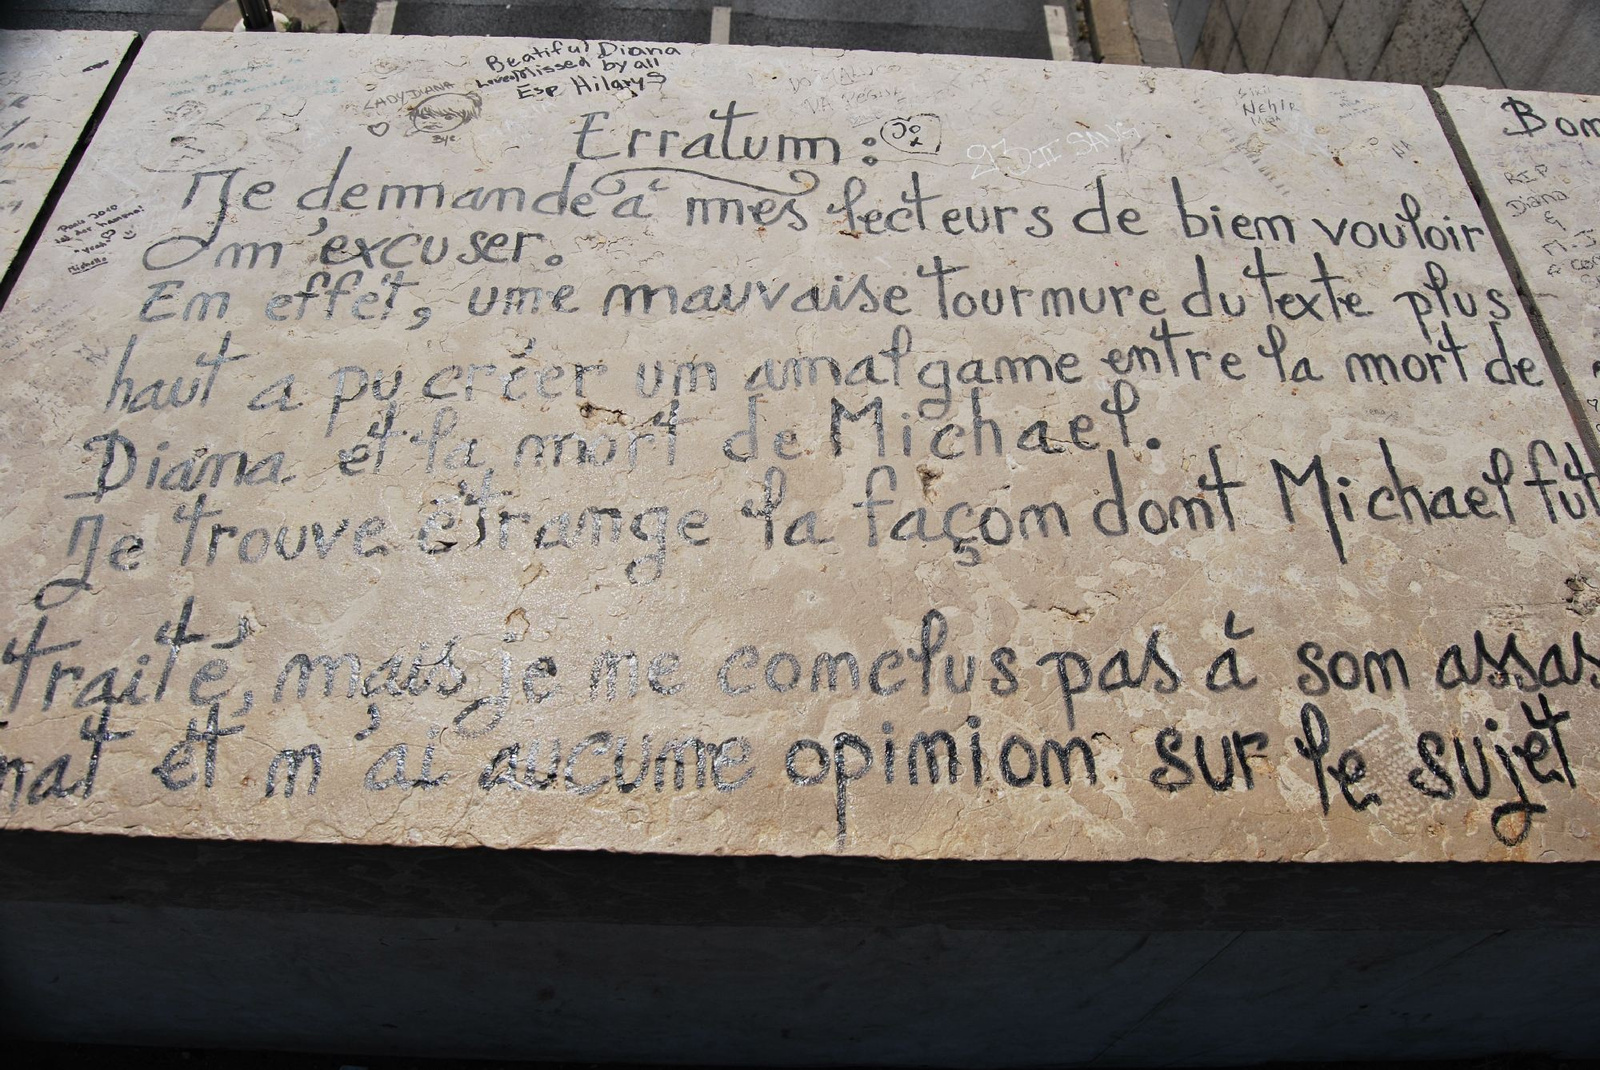 Beatiful Diana
Missed by all
Esp Hilary
LADY DIANA
Erratum :
Je demande à mes lecteurs de bien vouloir
m'excuser.
En effet, une mauvaise tournure du texte plus
haut a pu créer un amalgame entre la mort de
Diana et la mort de Michael.
Je trouve étrange la façon dont Michael fut
traité, mais je ne conclus pas à son assas
nat et n'ai aucune opinion sur le sujet
Paris 2010
Michelle
Nehir
Bon
RIP
Diana
&
M.J